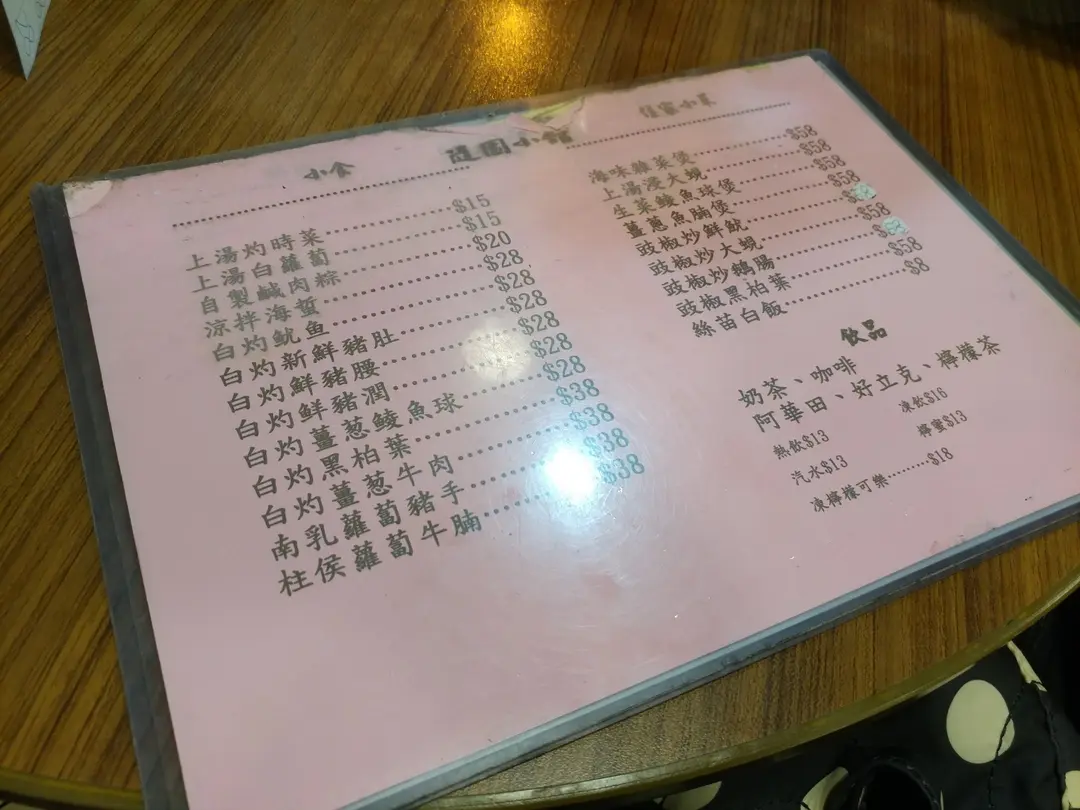 小食
上湯灼時菜……………$15
上湯白蘿蔔……………$15
自製鹹肉粽……………$20
涼拌海蜇……………$28
白灼魷魚……………$28
白灼新鮮豬肚……………$28
白灼鮮豬腰……………$28
白灼鮮豬潤……………$28
白灼薑葱鯪魚球……………$28
白灼黑柏葉……………$38
白灼薑葱牛肉……………$38
南乳蘿蔔豬手……………$38
柱侯蘿蔔牛腩……………$38
小菜
海味雜菜煲……………$58
上湯浸大蜆……………$58
生菜鯪魚球煲……………$58
薑葱魚腩煲……………$58
豉椒炒鮮魷……………
豉椒炒大蜆……………$58
豉椒炒鵝腸……………
豉椒黑柏葉……………$58
絲苗白飯……………$8
飲品
奶茶、咖啡
阿華田、好立克、檸檬茶
熱飲$13 凍飲$16
汽水$13 檸蜜$13
凍檸檬可樂………$18